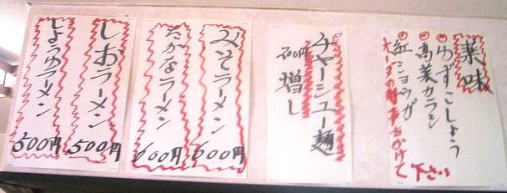 薬味
◎ゆずこしょう
◎高菜カラシ
◎紅ショウガ
オーダの時声をかけて
下さい
チャーシュー麺
200円増し
みそラーメン
600円
たかなラーメン
600円
しおラーメン
500円
しょうゆラーメン
500円